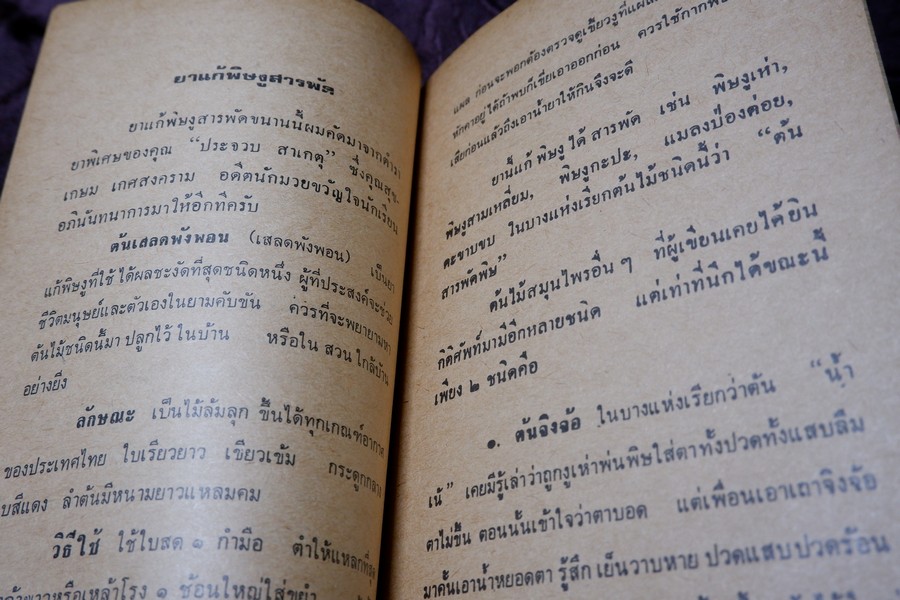 ยาแก้พิษงูสารพัด
ยาแก้พิษงูสารพัดขนานนี้ผมคัดมาจากตำรา
ยาพิเศษของคุณ “ประจวบ สาเกตุ” ซึ่งคุณสุข-
เกษม เกศสงคราม อดีตนักมวยขวัญใจนักเรียน
อภินันทนาการมาให้อีกทีครับ
ต้นเสลดพังพอน (เสลดพังพอน) เป็นยา
แก้พิษงูที่ใช้ได้ผลชะงัดที่สุดชนิดหนึ่ง ผู้ที่ประสงค์จะช่วย
ชีวิตมนุษย์และตัวเองในยามคับขัน ควรที่จะพยายามหา
ต้นไม้ชนิดนี้มา ปลูกไว้ในบ้าน หรือใน สวน ใกล้บ้าน
อย่างยิ่ง
ลักษณะ เป็นไม้ล้มลุก ขึ้นได้ทุกเกณฑ์อากาศ
ของประเทศไทย ใบเรียวยาว เขียวเข้ม กระดูกกลาง
บสีแดง ลำต้นมีหนามยาวแหลมคม
วิธีใช้ ใช้ใบสด ๑ กำมือ ตำให้แหลกที่สุด
หรือเหล้าโรง ๑ ช้อนใหญ่ใส่ขยำ
แผล ก่อนจะพอกต้องตรวจดูเขี้ยวงูที่แผล
หักคาอยู่ ได้ถ้าพบก็เขี่ยเอาออกก่อน ควรใช้กาก
เสียก่อนแล้วถึงเอาน้ำยาให้กินจึงจะดี
ยานี้แก้ พิษงู ได้ สารพัด เช่น พิษงูเห่า,
พิษงูสามเหลี่ยม, พิษงูกะปะ, แมลงป่องต่อย,
ตะขาบขบ ในบางแห่งเรียกต้นไม้ชนิดนี้ว่า “ต้น
สารพัดพิษ”
ต้นไม้สมุนไพรอื่น ๆ ที่ผู้เขียนเคยได้ยิน
กิตติศัพท์มามีอีกหลายชนิด แต่เท่าที่นึกได้ขณะนี้
เพียง ๒ ชนิดคือ
๑. ต้นจิงจ้อ ในบางแห่งเรียกว่าต้น “น้ำ
เน้” เคยมีรู้เล่าว่าถูกงูเห่าพ่นพิษใส่ตาทั้งปวดทั้งแสบลืม
ตาไม่ขึ้น ตอนนั้นเข้าใจว่าตาบอด แต่เพื่อนเอาเถาจิงจ้อ
มาคั้นเอาน้ำหยอดตา รู้สึก เย็นวาบหาย ปวดแสบปวดร้อน